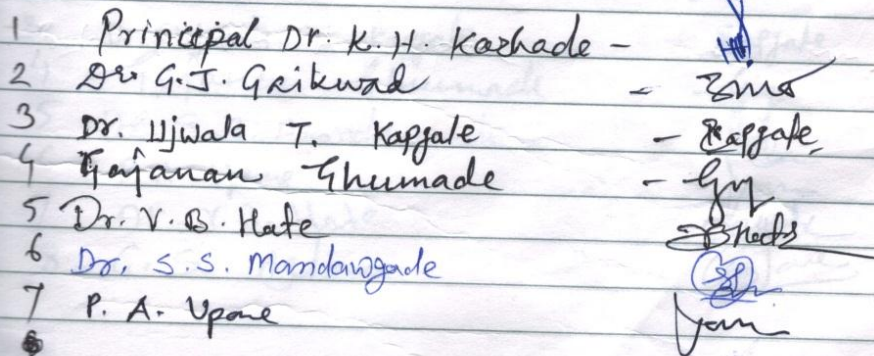 1 Principal Dr. K. H. Kazhade -
2 Dr. G. J. Gaikwad -
3 Dr. Ujwala T. Kapgate - Kapgate
4 Gajanan Ghumade -
5 Dr. V. B. Hate
6 Dr. S. S. Mandawgade
7 P. A. Upone